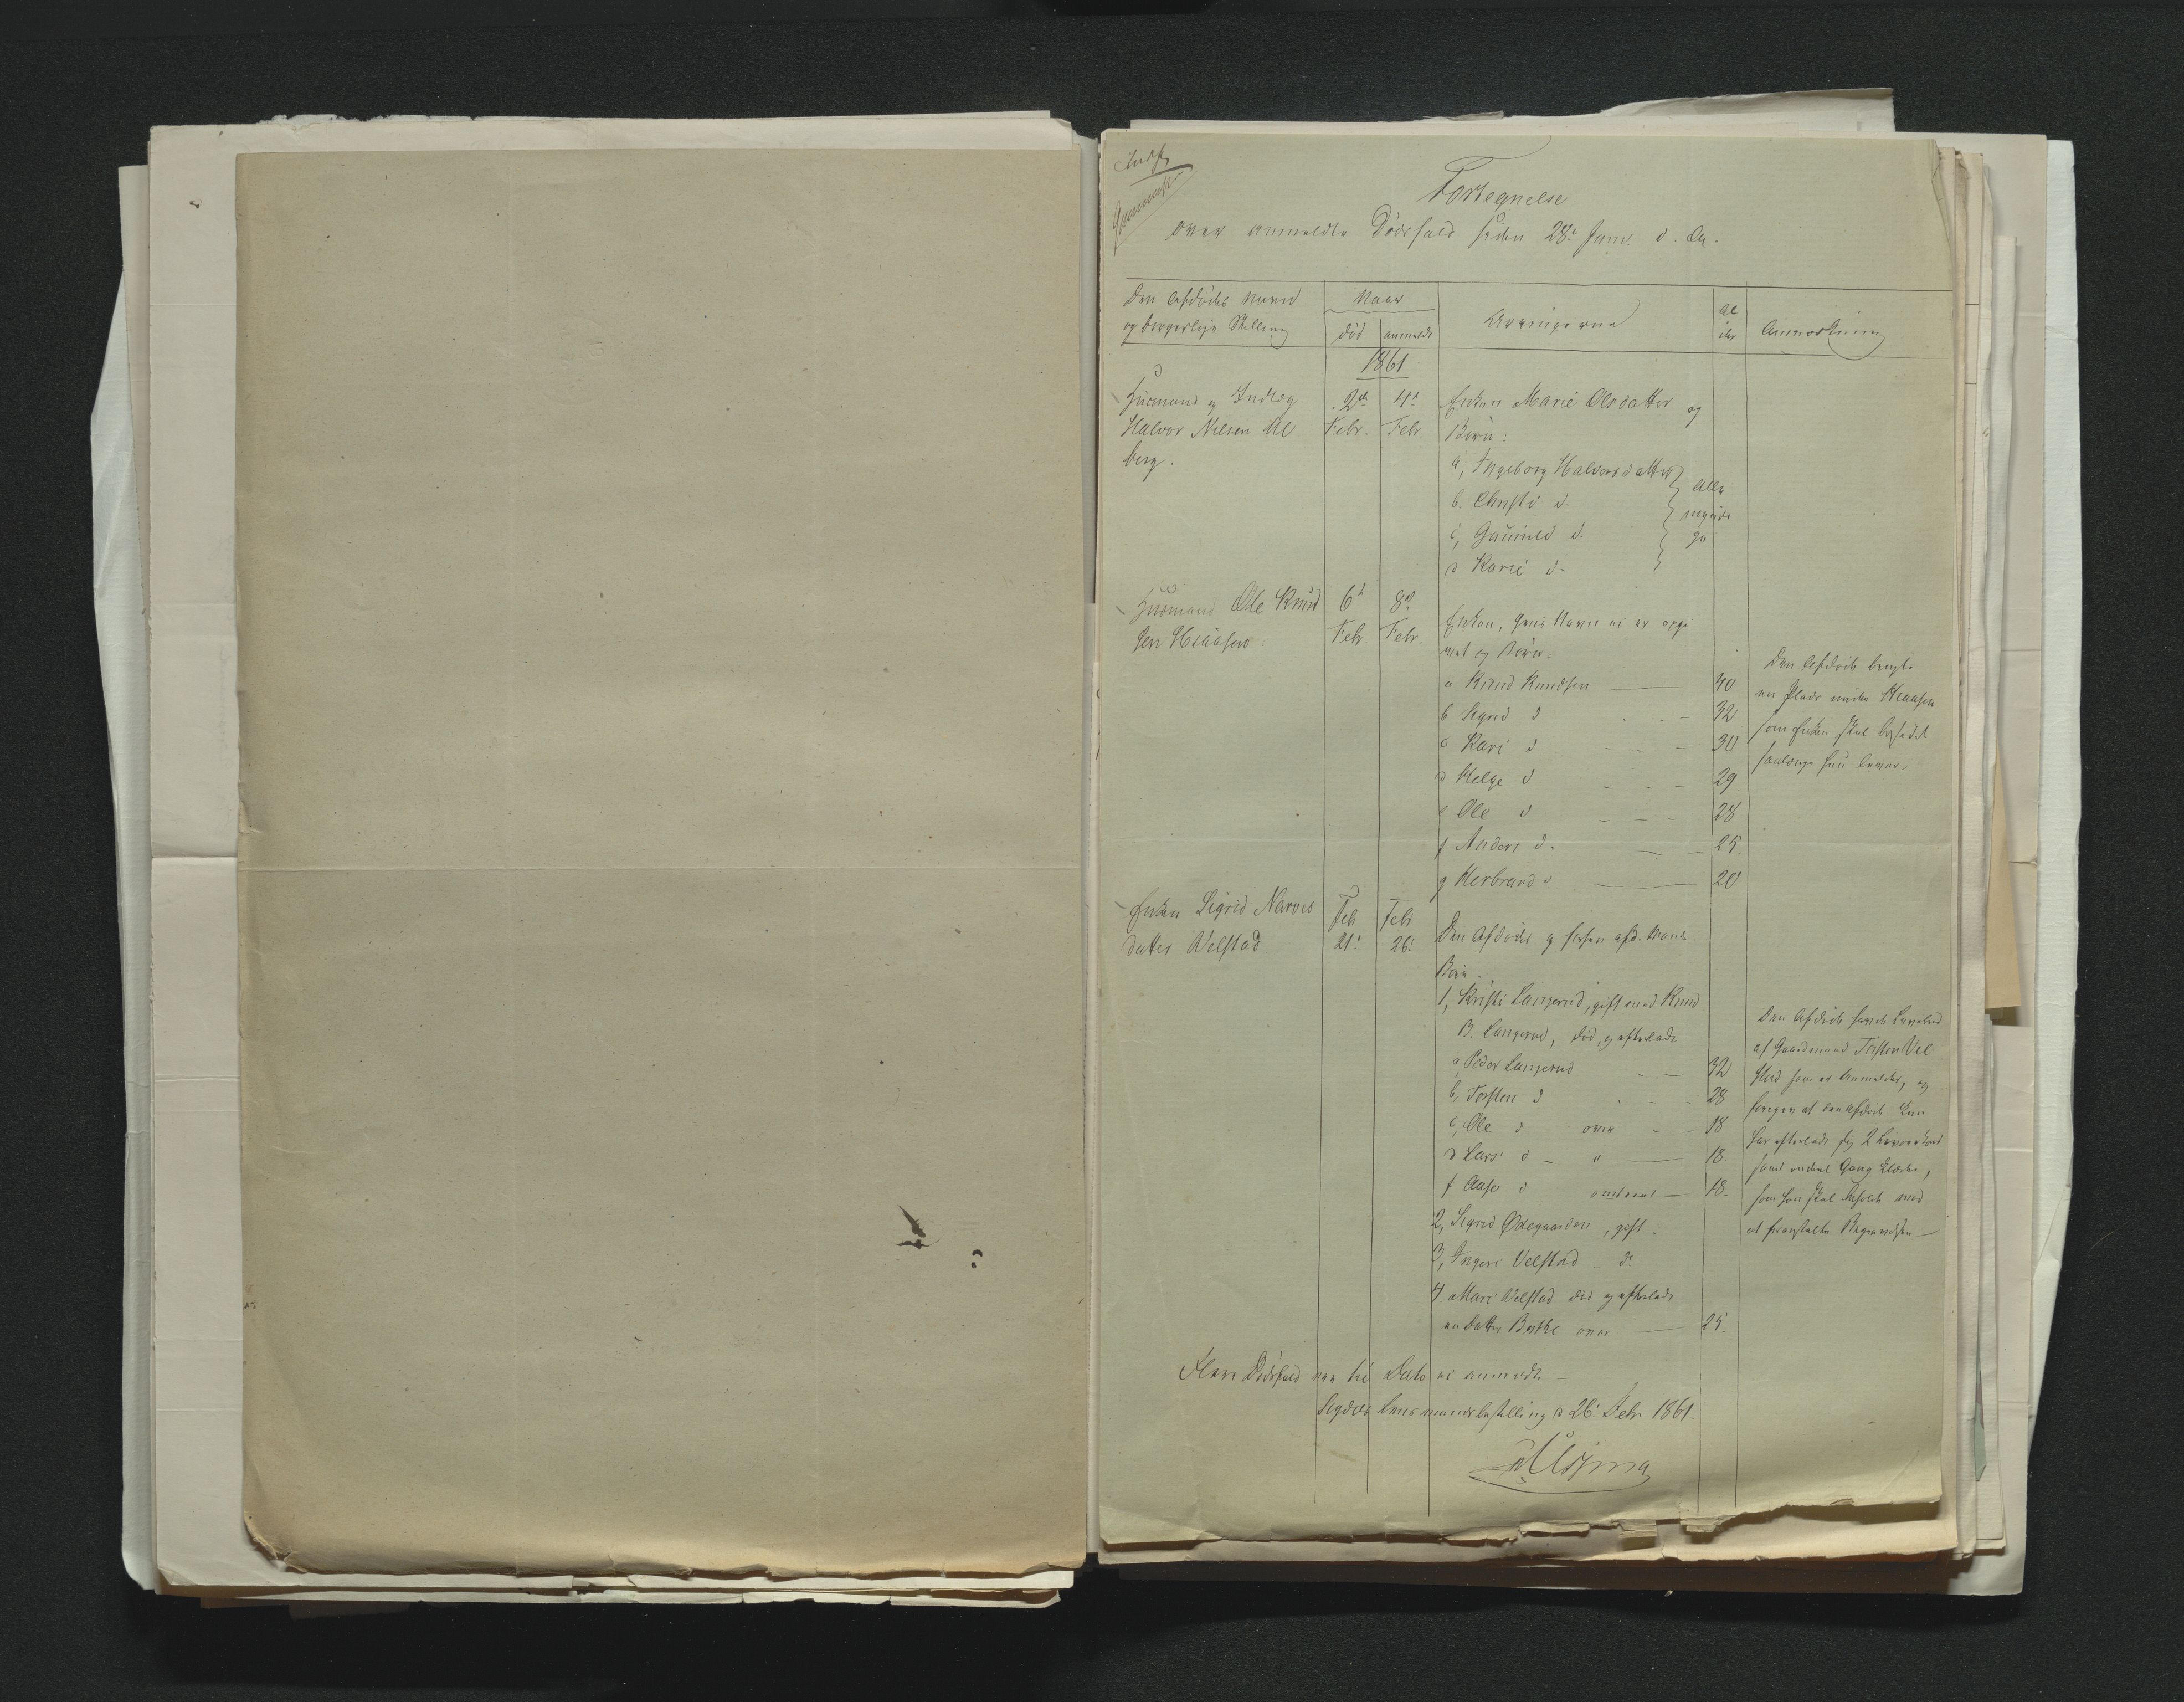 Fortegnelse
over anmeldte Dødsfald siden 28de Janr. d. A.
Den Afdødes Navn
og borgerlige Stilling
Naar
død
anmeldt
Arvingerne
Al
der
Anmærkning
1861
Husmand og Indlæg
Halvor Nilsen Al
berg.
2den
Febr.
4de
Febr.
Enken Marie Olsdatter og
Børn:
a, Ingeborg Halvorsdatter
b. Christi d.
c, Gunild d.
d Karie d.
alle
myndi
ge
Husmand Ole Knud
sen
6te
Febr.
8de
Febr.
Enken, hvis Navn ei er opgi
vet og Børn:
a Knud Knudsen 40
b Sigrid d 32
c Kari d 30
d Helge d 29
e Ole d 28
f Anders d. 25.
g Herbrand d 20
Den Afdøde brugte
en Plads under
som Enken skal besidde
saalænge hun lever.
Enken Sigrid Narves
datter Velstad
Feb
21de
Febr
26de
Den Afdødes og hendes afd. Mands
Børn.
1, Kristi Langerud, gift med Knud
B. Langerud, død, og efterladt
a, Peder Langerud 32
b, Torsten d 28
c, Ole d over 18
d Lars d - " 18.
f Aase d omtrent 18.
2, Sigrid Ødegaarden, gift.
3, Ingeri Velstad d.
4 Mari Velstad død og efterladt
en Datter Berthe over 25.
Den Afdøde havde Levebrød
af Gaardmand Torsten Vel
stad som er Anmelder, og
foregav at den Afdøde kun
har efterladt sig 2
samt endeel Gang Klæder,
som han skal beholde mod
at bekoste Begravelsen
Flere Dødsfald er til Dato ei anmeldt.
Sigdals Lensmandsbestilling d 26de Febr 1861.